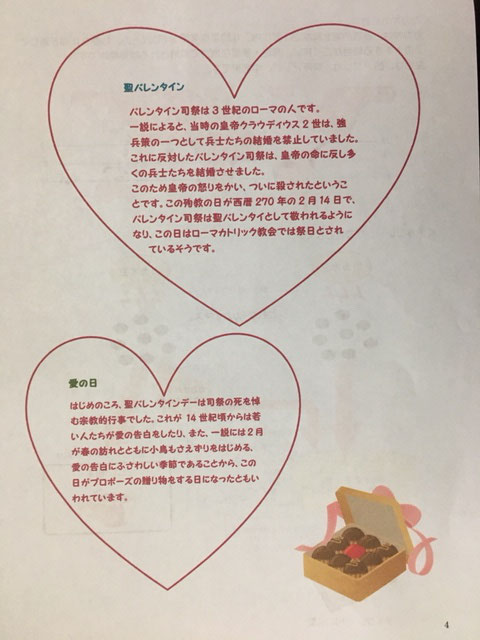 聖バレンタイン
バレンタイン司祭は3世紀のローマの人です。
一説によると、当時の皇帝クラウディウス2世は、強
兵策の一つとして兵士たちの結婚を禁止していました。
これに反対したバレンタイン司祭は、皇帝の命に反し多
くの兵士たちを結婚させました。
このため皇帝の怒りをかい、ついに殺されたというこ
とです。この殉教の日が西暦270年の2月14日で、
バレンタイン司祭は聖バレンタイとして敬われるように
なり、この日はローマカトリック教会では祭日とされ
ているそうです。
愛の日
はじめのころ、聖バレンタインデーは司祭の死を悼
む宗教的行事でした。これが14世紀頃からは若
い人たちが愛の告白をしたり、また、一説には2月
が春の訪れとともに小鳥もさえずりをはじめる、
愛の告白にふさわしい季節であることから、この
日がプロポーズの贈り物をする日になったともい
われています。
4